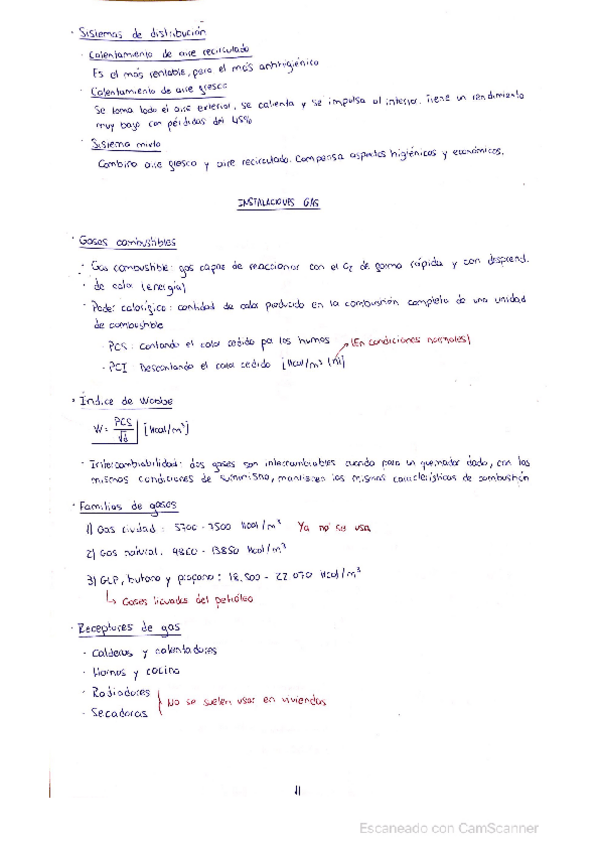 · Sistemas de distribución
· Calentamiento de aire recirculado
Es el más rentable, pero el más antihigiénico
· Calentamiento de aire fresco
Se toma todo el aire exterior, se calienta y se impulsa al interior. Tiene un rendimiento
muy bajo con pérdidas del 45%
· Sistema mixto
Combina aire fresco y aire recirculado. Compensa aspectos higiénicos y económicos.
INSTALACIONES GAS
· Gases combustibles
· Gas combustible: gas capaz de reaccionar con el de forma rápida y con desprend.
· de calor (energía)
· Poder calorífico: cantidad de calor producido en la combustión completa de una unidad
de combustible
· PCS: contando el calor cedido por los humos (En condiciones normales)
· PCI: Descontando el calor cedido [kcal/m³ (n)]
· Índice de Wobbe
W = PCS/√d [kcal/m³]
· Intercambiabilidad: dos gases son intercambiables cuando para un quemador dado, con las
mismas condiciones de suministro, mantienen las mismas características de combustión
· Familias de gases
1) Gas ciudad: 5700 - 7500 kcal/m³ Ya no se usa
2) Gas natural: 9860 - 13850 kcal/m³
3) GLP, butano y propano: 18.500 - 22.070 kcal/m³
↳ Gases licuados del petróleo
· Receptores de gas
· Calderas y calentadores
· Hornos y cocina
· Radiadores
· Secadoras } No se suelen usar en viviendas
11
Escaneado con CamScanner